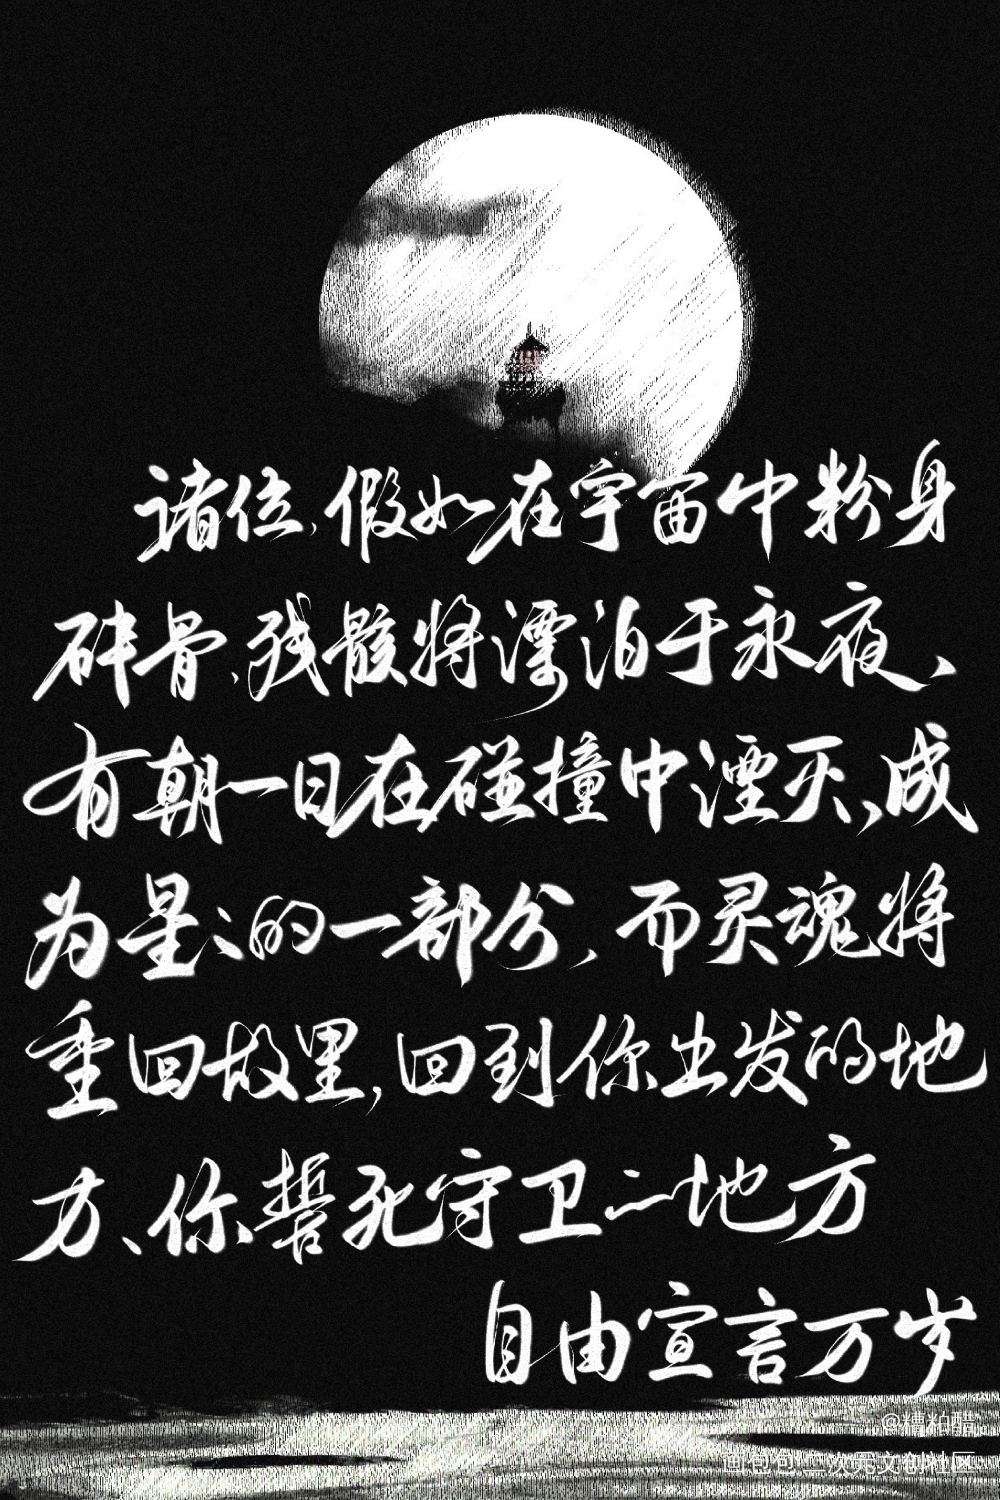 诸位，假如在宇宙中粉身
碎骨、残骸将漂泊于永夜、
有朝一日在碰撞中湮灭、成
为星辰的一部分，而灵魂将
重回故里，回到你出发的地
方、你誓死守卫的地方
自由宣言万岁
@糟粕醋
画包包二次元文创社区